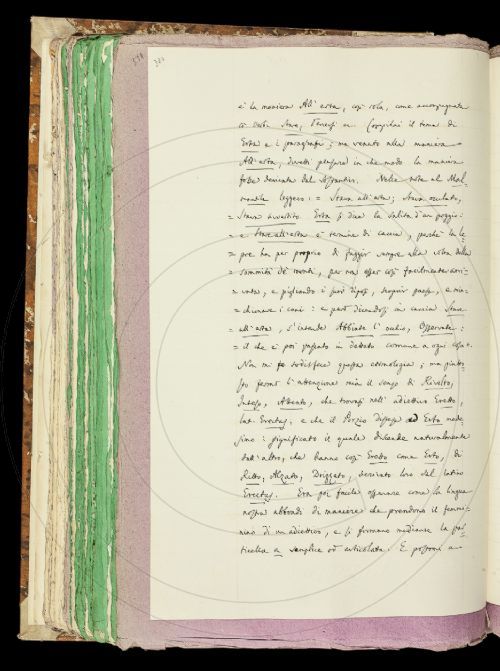 e la maniera All' erta, così sola, come accompagnata
co' verbi Stare, Tenersi ec. Compilai il tema di
Erta e i paragrafi; ma venuto alla maniera
All' erta, dovetti pensare in che modo la maniera
fosse derivata dal sostantivo. Nelle note al Mal-
mantile leggevo: = Stare all' erta; Stare oculato,
= Stare avvertito. Erta si dice la salita d'un poggio:
= e Stare all' erta è termine di caccia, perchè la le-
= pre ha per proprio di fuggir sempre alla volta della
= sommità de' monti, per non esser così facilmente arri-
= vata, e pigliando i suoi riposi, scoprir paese, e min-
= chionare i cani: e però dicendosi in caccia Stare
= all' erta, s'intende Abbiate l' occhio, Osservate:
= il che è poi passato in dettato comune a ogni cosa =.
Non mi sodisfece questa etimologia; ma piut-
tosto fermò l' attenzione mia il senso di Rivolto,
Inteso, Attento, che trovasi nell' adiettivo Eretto,
lat. Erectus; e che il Porzio dissesi ad Erto mede-
simo: significato il quale discende naturalmente
dall' altro, che hanno così Eretto come Erto, di
Ritto, Alzato, Drizzato, derivato loro dal latino
Erectus. Era poi facile osservare come la lingua
nostra abbondi di maniere che prendono il femmi-
nino di un adiettivo, e si formano mediante la par-
ticella a semplice od articolata. E possono a-